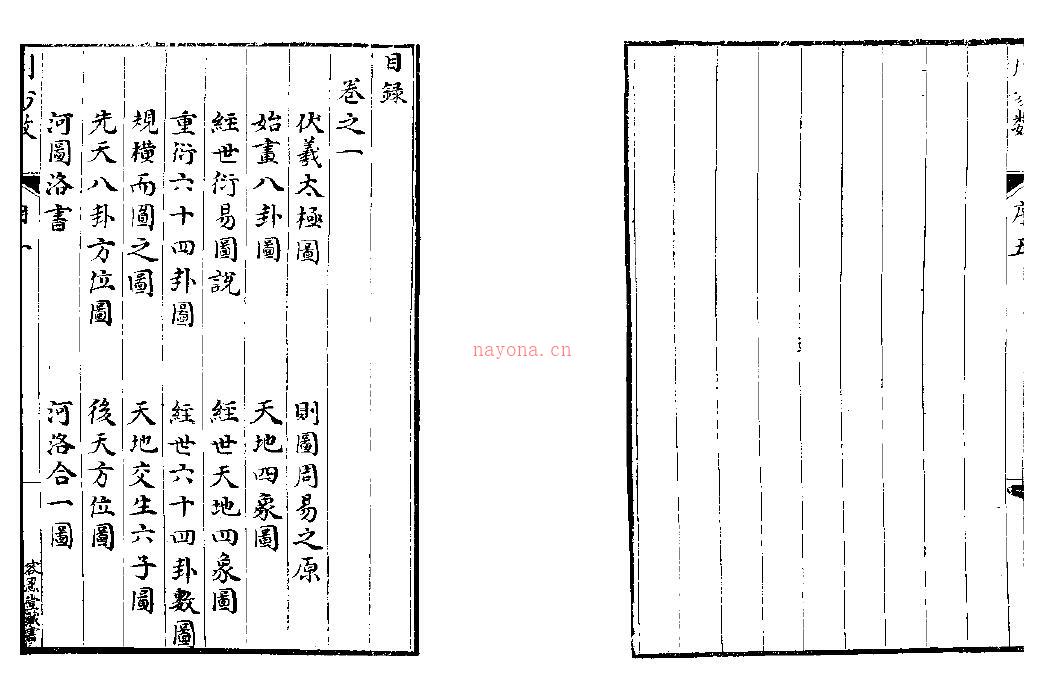 目錄
卷之一
伏羲太極圖 則圖周易之原
始畫八卦圖 天地四象圖
經世衍易圖說 經世天地四象圖
重衍六十四卦圖 經世六十四卦數圖
規橫而圖之圖 天地交生六子圖
先天八卦方位圖 後天方位圖
河圖洛書 河洛合一圖
nayona.cn
序五